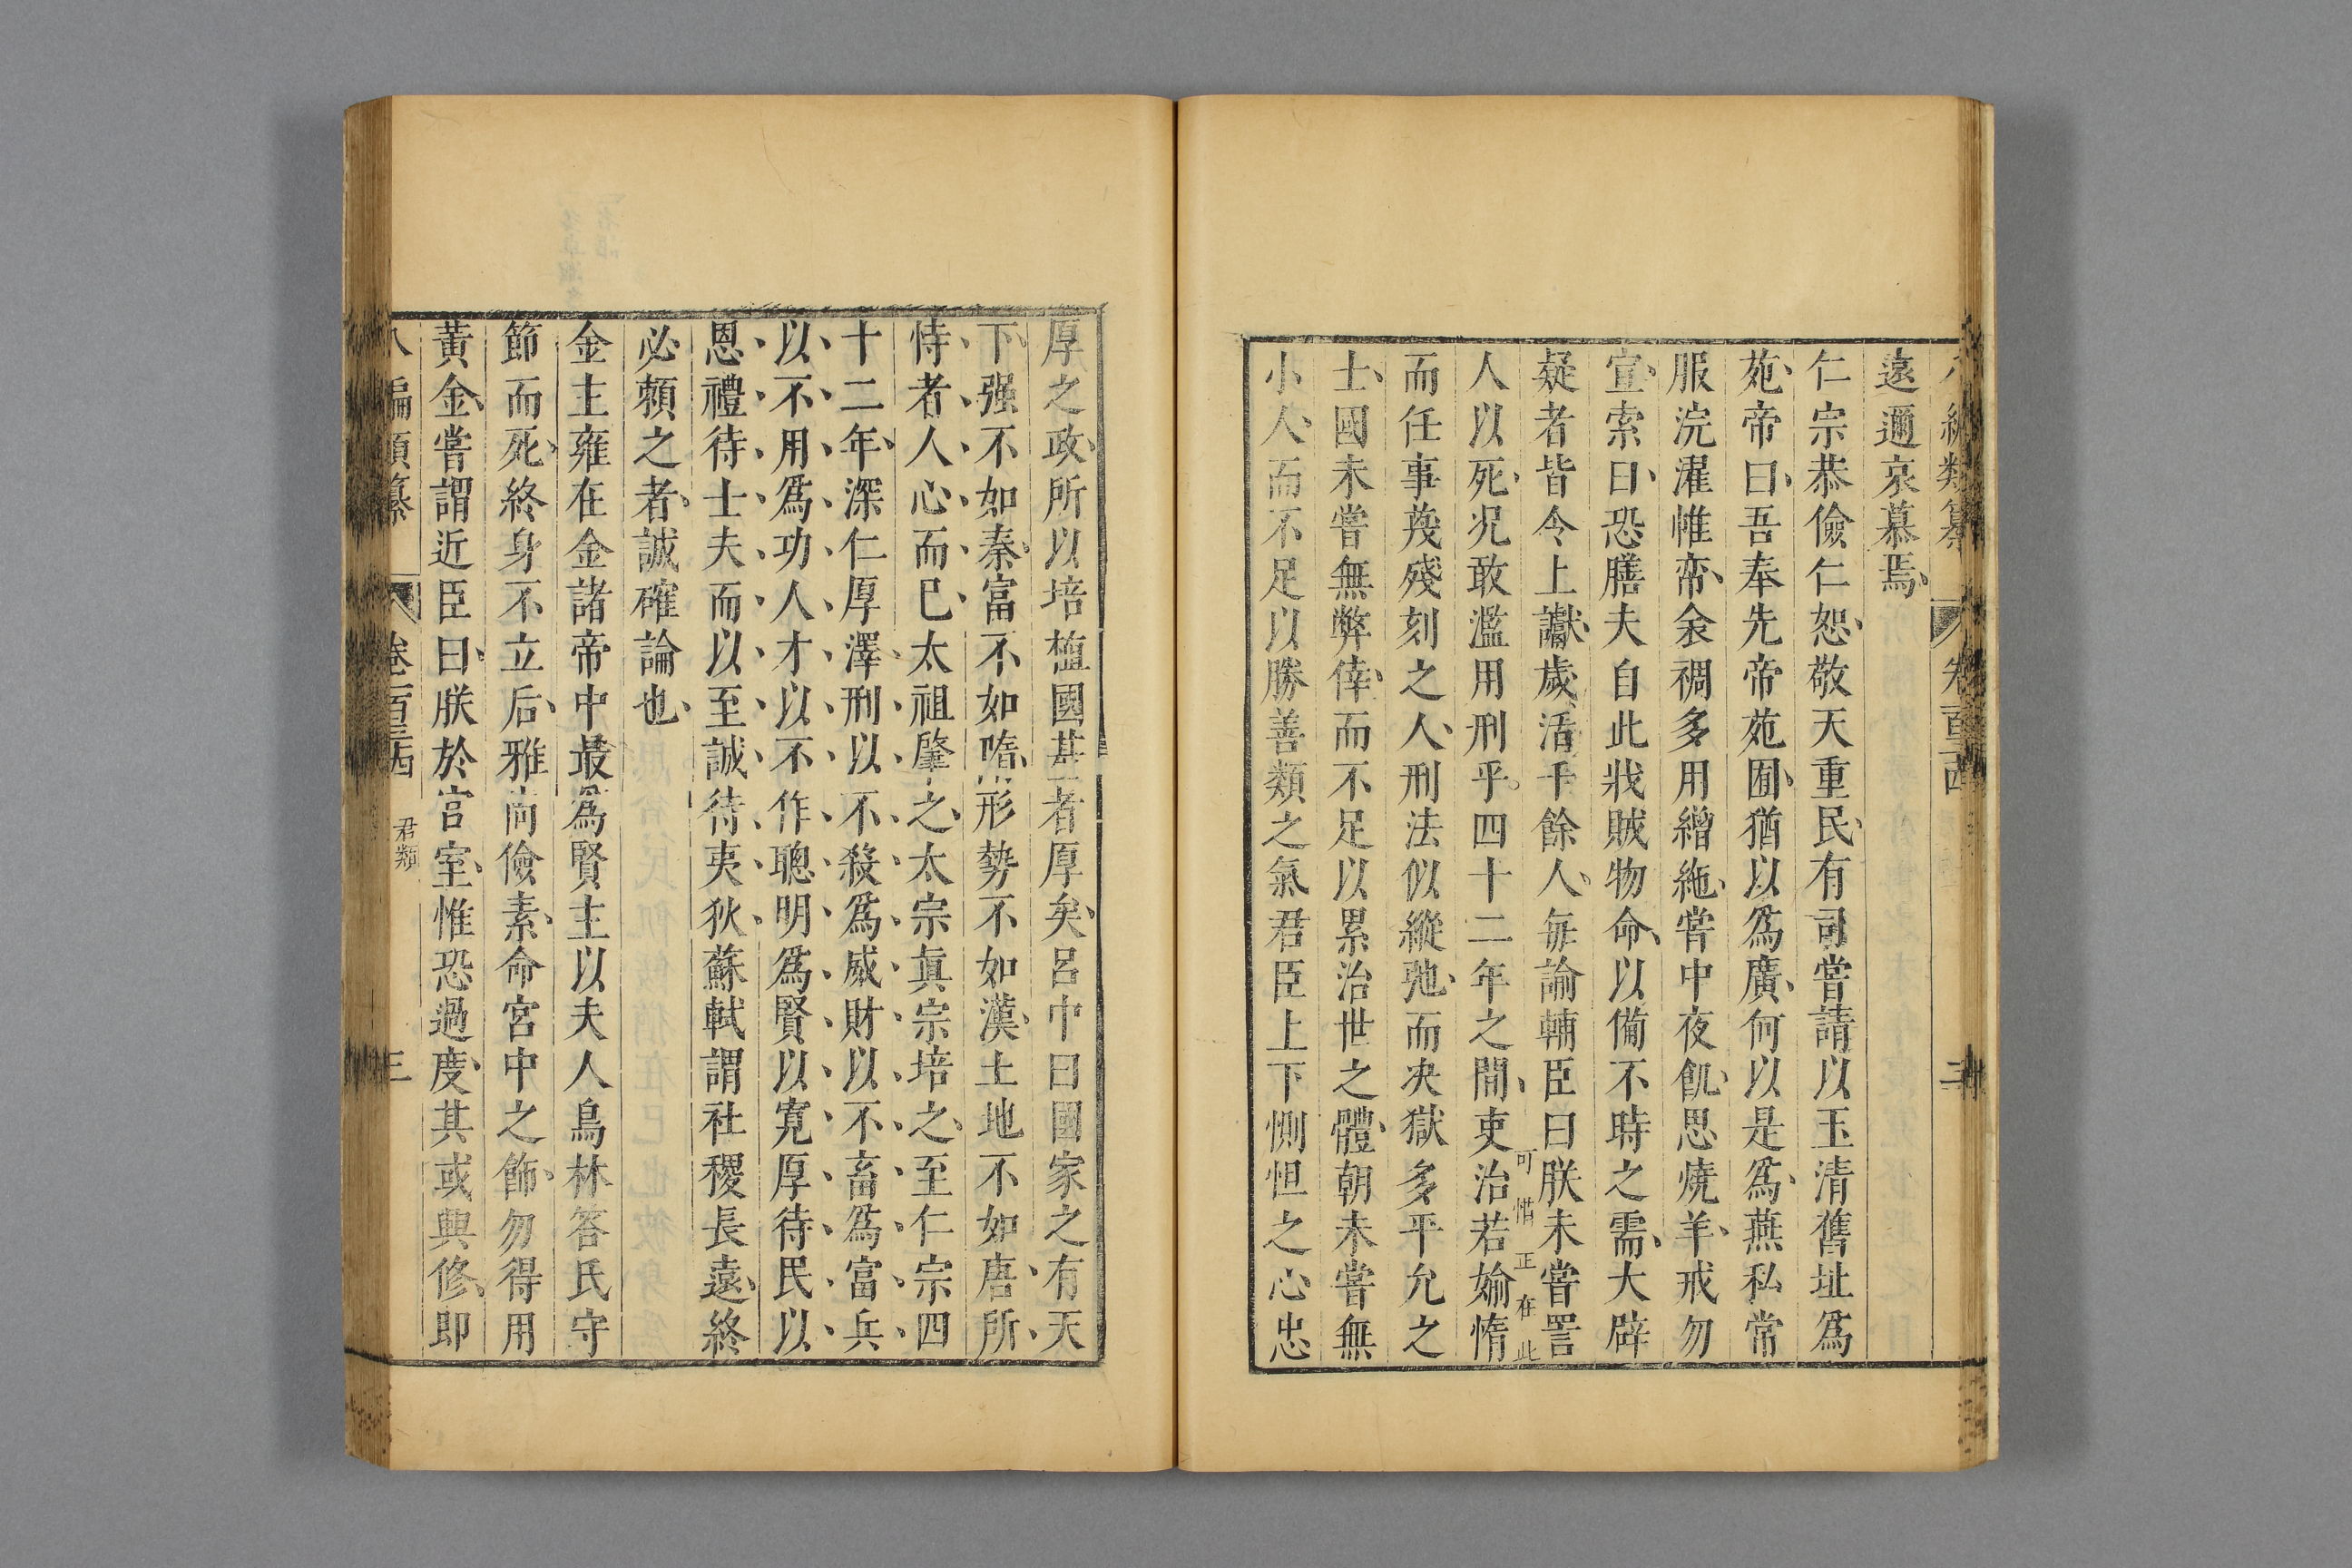 八編類纂 卷百五十四 二
遠邇哀慕焉
仁宗恭儉仁恕敬天重民有司嘗請以玉清舊址爲
苑帝曰吾奉先帝苑囿猶以爲廣何以是爲燕私常
服浣濯帷帟衾裯多用繒絁嘗中夜飢思燒羊戒勿
宣索曰恐膳夫自此戕賊物命以備不時之需大辟
疑者皆令上讞歲活千餘人每諭輔臣曰朕未嘗詈
可惜正在此
人以死况敢濫用刑乎四十二年之間吏治若婾惰
而任事蔑殘刻之人刑法似縱弛而决獄多平允之
士國未嘗無弊倖而不足以累治世之體朝未嘗無
小人而不足以勝善類之氣君臣上下惻怛之心忠
厚之政所以培植國基者厚矣呂中曰國家之有天
下强不如秦富不如隋形勢不如漢土地不如唐所
恃者人心而已太祖肇之太宗眞宗培之至仁宗四
十二年深仁厚澤刑以不殺爲威財以不畜爲富兵
以不用爲功人才以不作聰明爲賢以寬厚待民以
恩禮待士夫而以至誠待夷狄蘇軾謂社稷長遠終
必賴之者誠確論也
金主雍在金諸帝中最爲賢主以夫人烏林答氏守
節而死終身不立后雅尚儉素命宮中之飾勿得用
黃金嘗謂近臣曰朕於宮室惟恐過度其或興修即
八編類纂 卷百五十四 君類 三